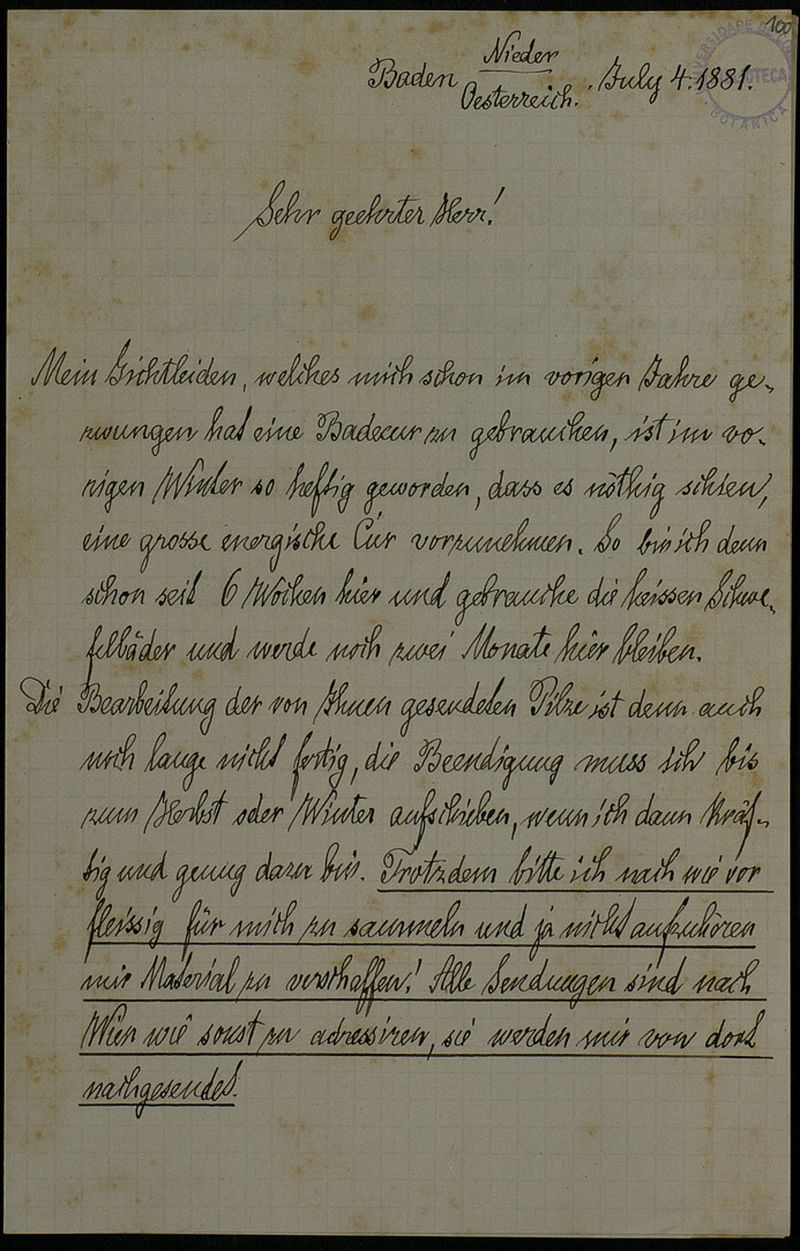 100
Baden Nieder
Oesterreich. July 4. 1881.
BOTANICA
Sehr geehrter Herr!
Mein Gichtleiden, welches mich schon im vorigen Jahre ge-
zwungen hat eine Badecur zu gebrauchen, ist im vo-
rigen Winter so heftig geworden, dass es nöthig schien,
eine grosse energische Cur vorzunehmen. So bin ich denn
schon seit 6 Wochen hier und gebrauche die heissen Schwe-
felbäder und werde noch zwei Monate hier bleiben.
Die Bearbeitung der von Ihnen gesendeten Pilze ist denn auch
noch lange nicht fertig, die Beendigung muss ich bis
zum Herbst oder Winter aufschieben, wenn ich dann kräf-
tig und genug dazu bin. Trotzdem bitte ich nach wie vor
fleissig für mich zu sammeln und ja nicht aufzuhören
mir Material zu verschaffen! Alle Sendungen sind nach
Wien wie sonst zu adressiren, sie werden mir von dort
nachgesendet.